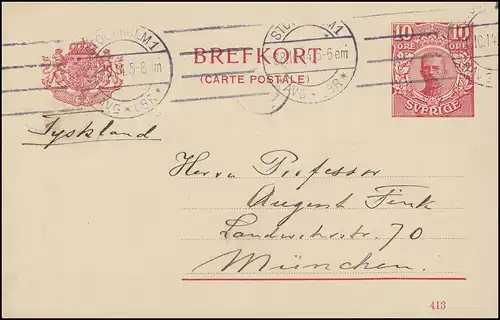 STOCKHOLM 1
5-6 em
AVG. LBR.
BREFKORT
(CARTE POSTALE)
STOCKHOLM 1
5-6 em
AVG. LBR.
10 10
ÖRE ÖRE
SVERIGE
Tyskland
Herrn Professor
August Fink
Landwehrstr. 70
München.
413